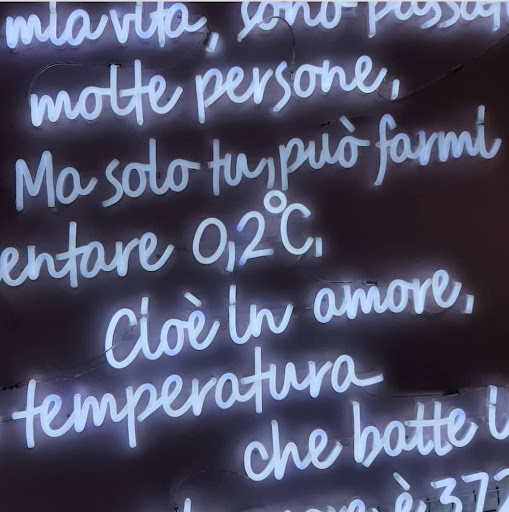 mia vita, sono passat
molte persone,
Ma solo tu, può farmi
entare 0,2°C,
Cioè in amore,
temperatura
che batte i
è 37